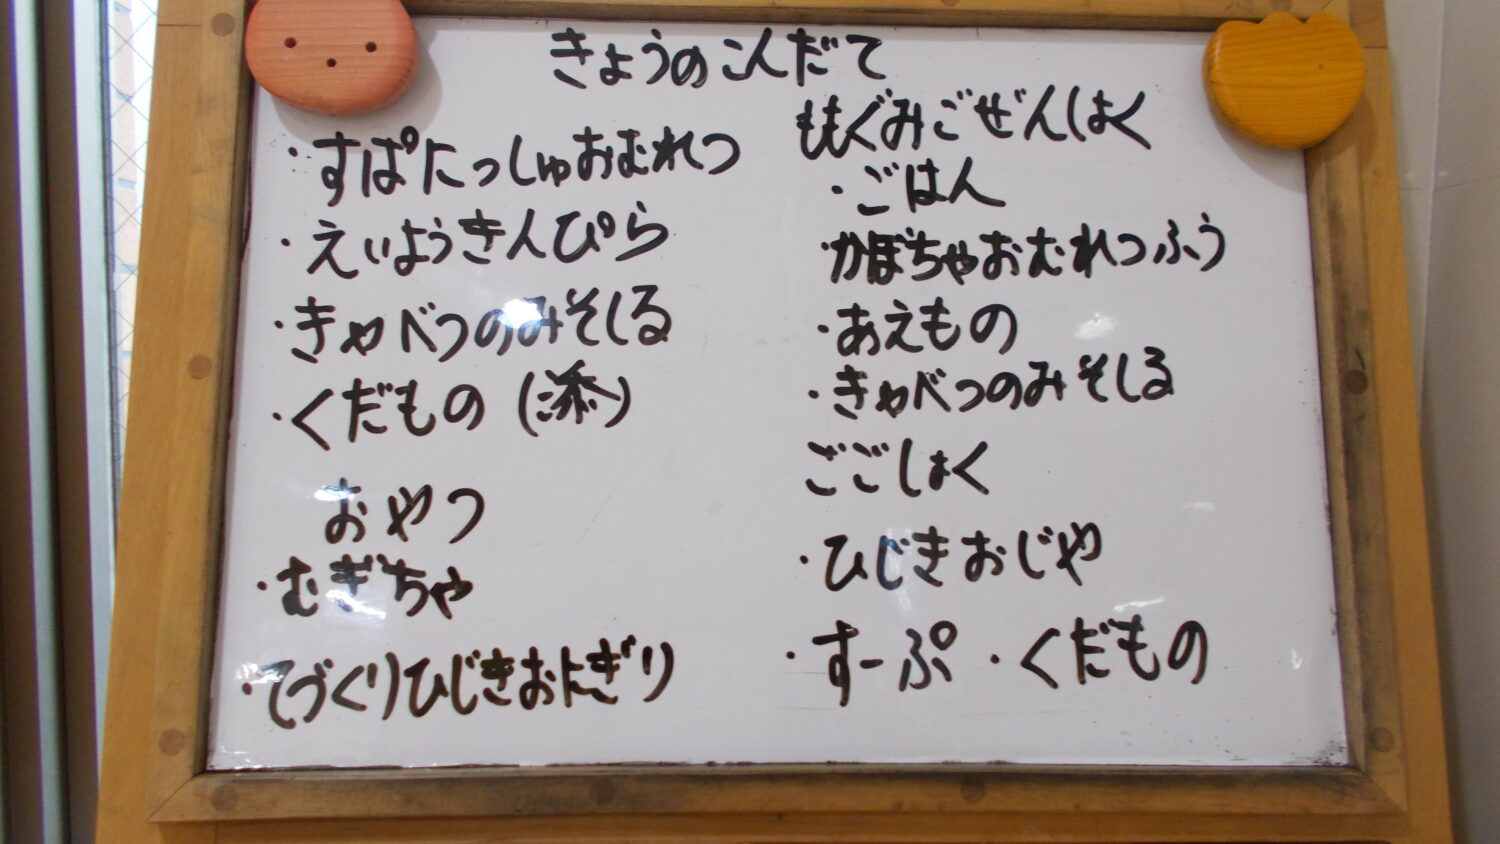 きょうのこんだて
・すぱにっしゅおむれつ
・えいようきんぴら
・きゃべつのみそしる
・くだもの (添)
おやつ
・むぎちゃ
・てづくりひじきおにぎり
ももぐみごぜんしょく
・ごはん
・かぼちゃおむれつふう
・あえもの
・きゃべつのみそしる
ごごしょく
・ひじきおじや
・すーぷ ・くだもの